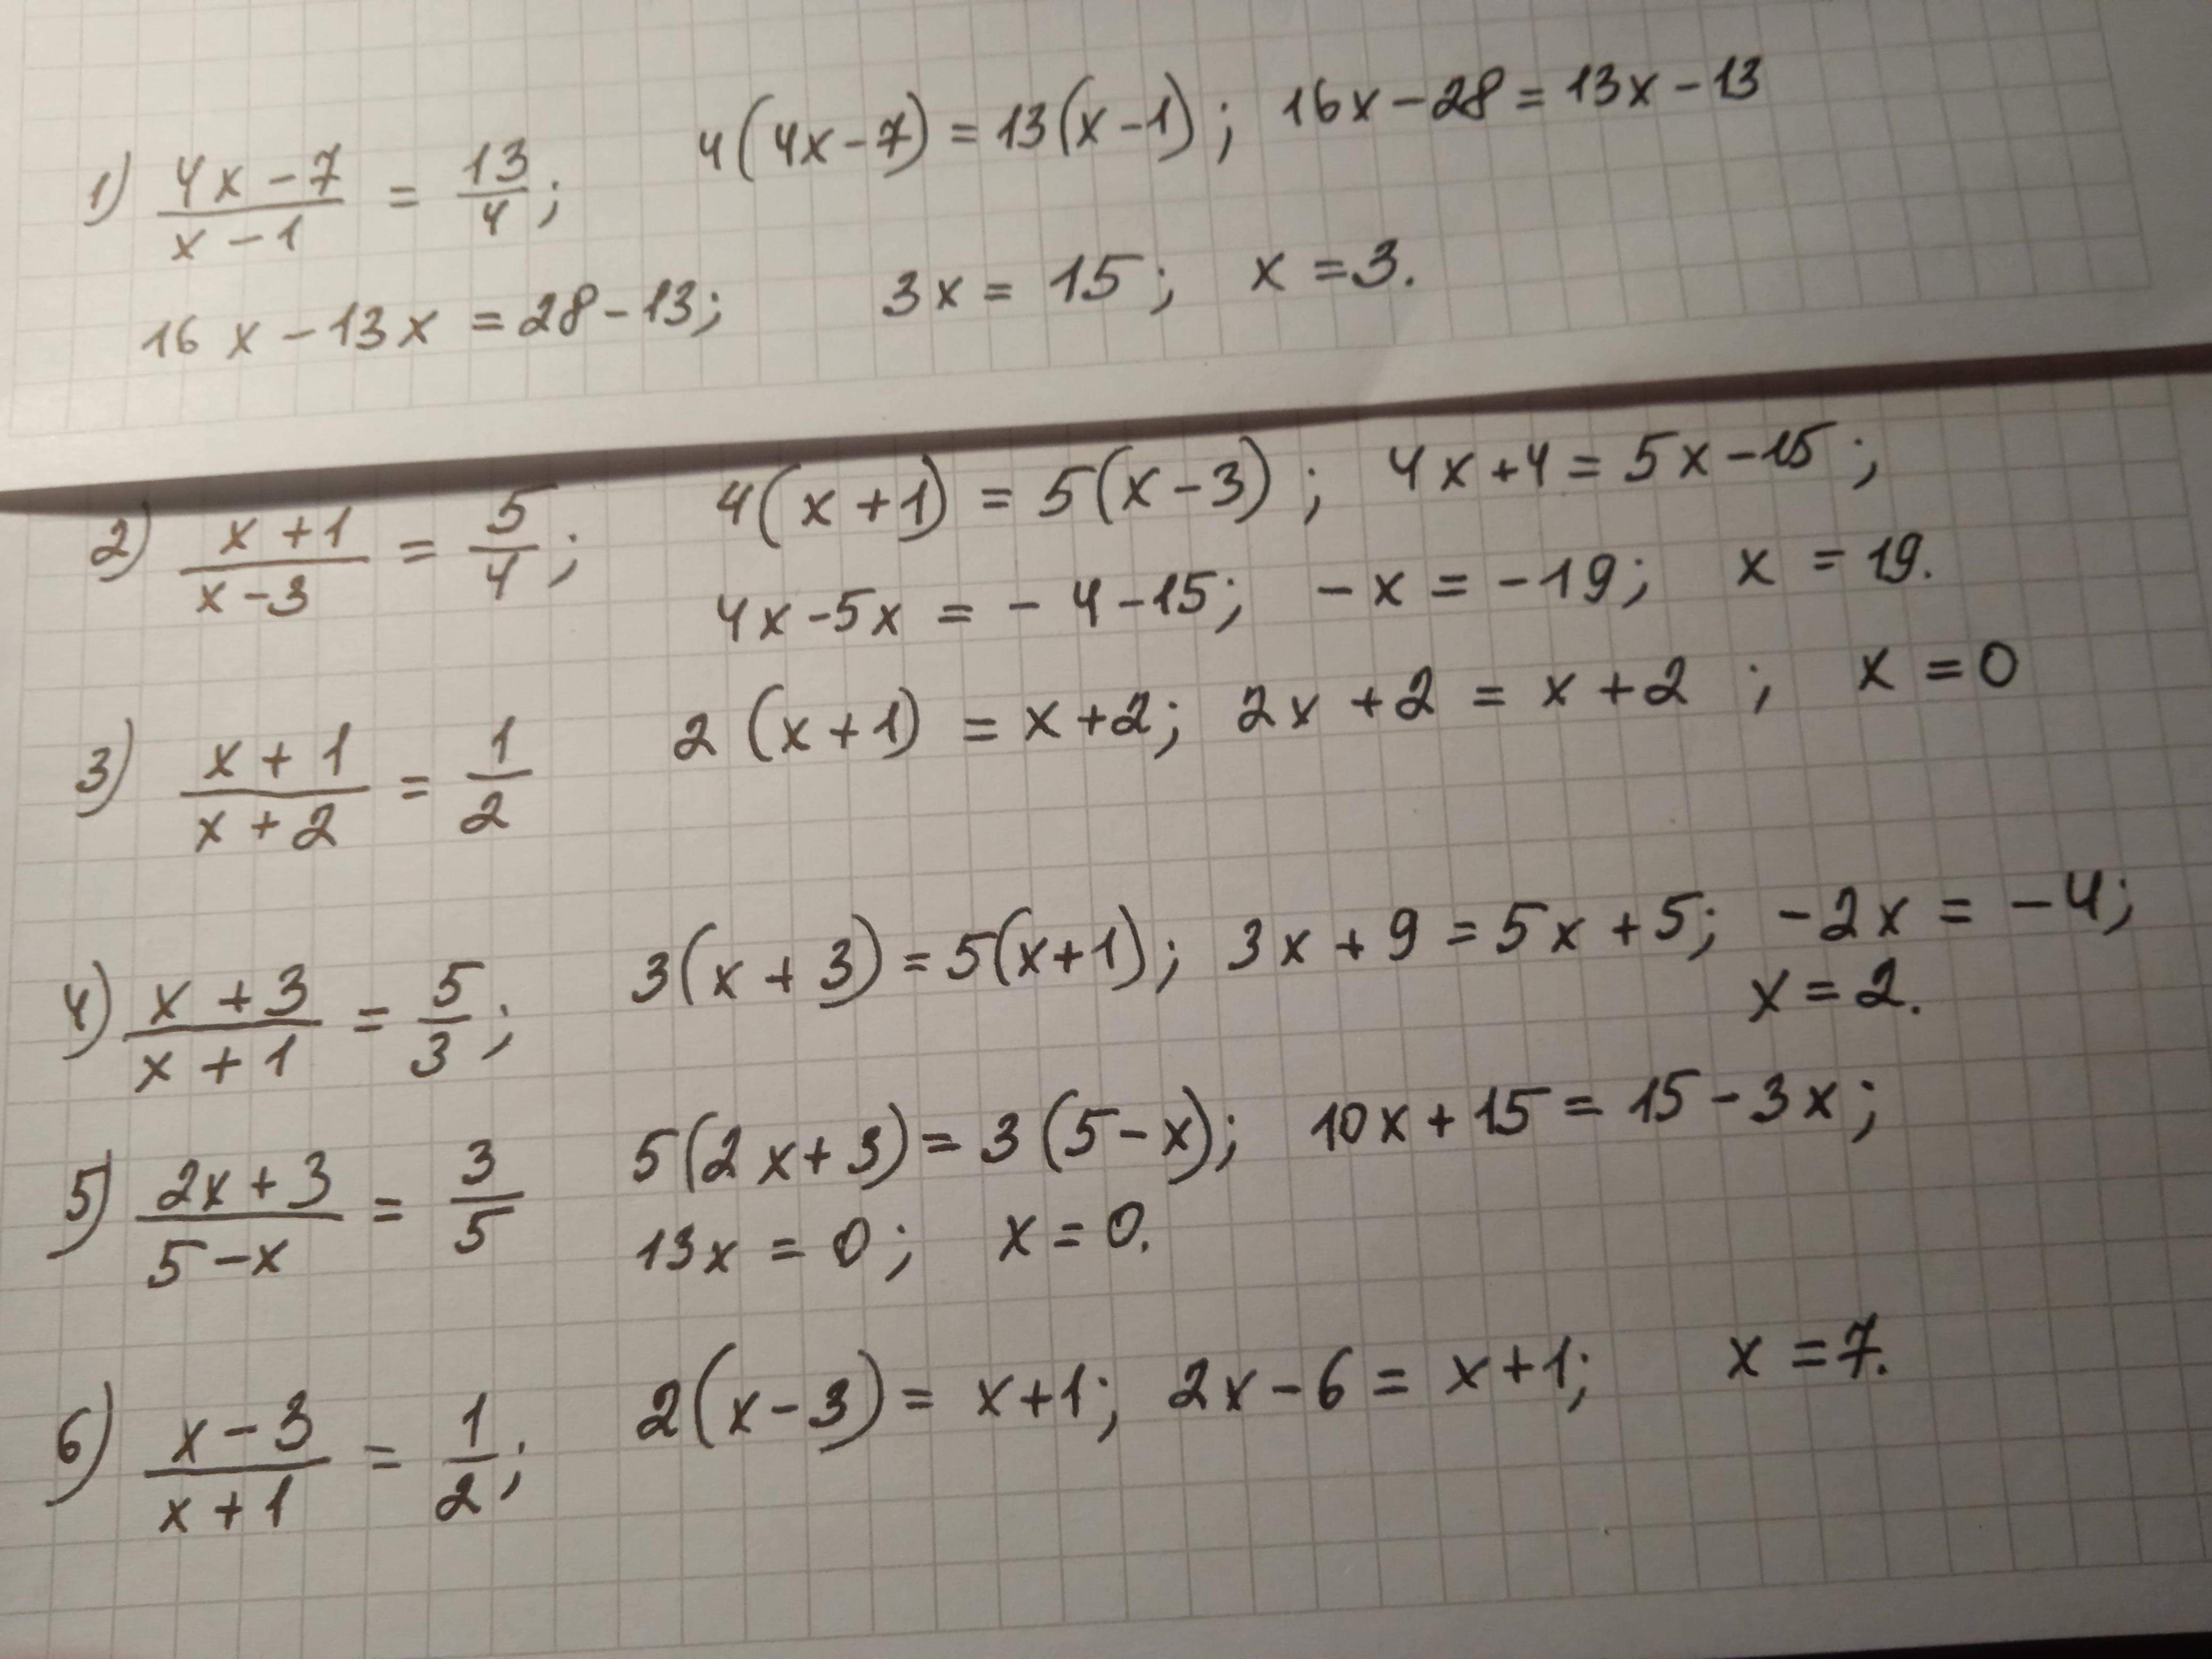 1) (4x-7)/(x-1) = 13/4; 4(4x-7) = 13(x-1); 16x-28 = 13x-13
16x-13x = 28-13; 3x = 15; x = 3.
2) (x+1)/(x-3) = 5/4; 4(x+1) = 5(x-3); 4x+4 = 5x-15;
4x-5x = -4-15; -x = -19; x = 19.
3) (x+1)/(x+2) = 1/2 2(x+1) = x+2; 2x+2 = x+2; x = 0
4) (x+3)/(x+1) = 5/3; 3(x+3) = 5(x+1); 3x+9 = 5x+5; -2x = -4;
x = 2.
5) (2x+3)/(5-x) = 3/5 5(2x+3) = 3(5-x); 10x+15 = 15-3x;
13x = 0; x = 0.
6) (x-3)/(x+1) = 1/2; 2(x-3) = x+1; 2x-6 = x+1; x = 7.